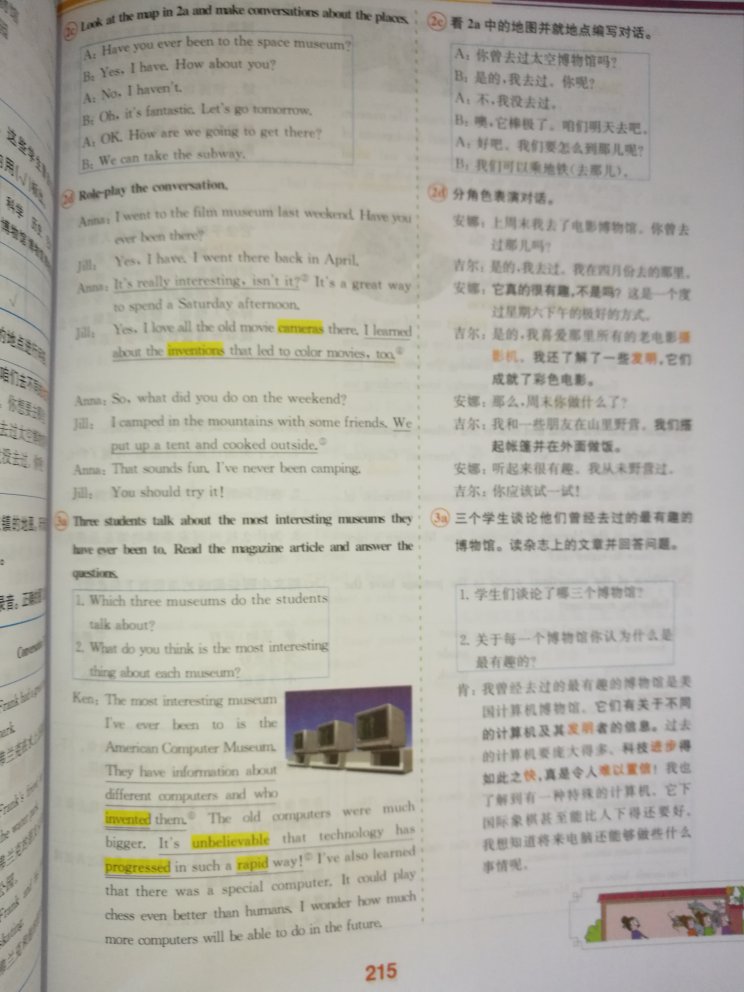 2c Look at the map in 2a and make conversations about the places.
A: Have you ever been to the space museum?
B: Yes, I have. How about you?
A: No, I haven't.
B: Oh, it's fantastic. Let's go tomorrow.
A: OK. How are we going to get there?
B: We can take the subway.
2d Role-play the conversation.
Anna: I went to the film museum last weekend. Have you
ever been there?
Jill: Yes, I have. I went there back in April.
Anna: It's really interesting, isn't it?② It's a great way
to spend a Saturday afternoon.
Jill: Yes, I love all the old movie cameras there. I learned
about the inventions that led to color movies, too.
Anna: So, what did you do on the weekend?
Jill: I camped in the mountains with some friends. We
put up a tent and cooked outside.
Anna: That sounds fun. I've never been camping.
Jill: You should try it!
3a Three students talk about the most interesting museums they
have ever been to. Read the magazine article and answer the
questions.
1. Which three museums do the students
talk about?
2. What do you think is the most interesting
thing about each museum?
Ken: The most interesting museum
I've ever been to is the
American Computer Museum.
They have information about
different computers and who
invented them. The old computers were much
bigger. It's unbelievable that technology has
progressed in such a rapid way! I've also learned
that there was a special computer. It could play
chess even better than humans. I wonder how much
more computers will be able to do in the future.
2c 看 2a 中的地图并就地点编写对话。
A: 你曾去过太空博物馆吗?
B: 是的,我去过。你呢?
A: 不,我没去过。
B: 噢,它棒极了。咱们明天去吧。
A: 好吧。我们要怎么到那儿呢?
B: 我们可以乘地铁(去那儿)。
2d 分角色表演对话。
安娜: 上周末我去了电影博物馆。你曾去
过那儿吗?
吉尔: 是的,我去过。我在四月份去的那里。
安娜: 它真的很有趣,不是吗? 这是一个度
过星期六下午的极好的方式。
吉尔: 是的,我喜爱那里所有的老电影摄
影机。我还了解了一些发明,它们
成就了彩色电影。
安娜: 那么,周末你做什么了?
吉尔: 我和一些朋友在山里野营。我们搭
起帐篷并在外面做饭。
安娜: 听起来很有趣。我从未野营过。
吉尔: 你应该试一试!
3a 三个学生谈论他们曾经去过的最有趣的
博物馆。读杂志上的文章并回答问题。
1. 学生们谈论了哪三个博物馆?
2. 关于每一个博物馆你认为什么是
最有趣的?
肯: 我曾经去过的最有趣的博物馆是美
国计算机博物馆。它们有关于不同
的计算机及其发明者的信息。过去
的计算机要庞大得多。科技进步得
如此之快,真是令人难以置信! 我也
了解到有一种特殊的计算机。它下
国际象棋甚至能比人下得还要好。
我想知道将来电脑还能够做些什么
事情呢。
215